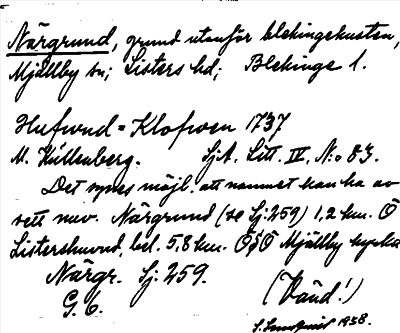 Närgrund, grund utanför blekingekusten,
Mjällby sn; Listers hd; Blekinge l.
Hufwud = Klofwen 1737
M. Küllenberg. Sj.A. Litt. IV, N:o 83.
Det synes möjl. att namnet kan ha av
sett nuv. Närgrund (se Sj. 259) 1,2 km. Ö
Listershuvud, bel. 5,8 km. ÖSÖ Mjällby kyrka
Närgr. Sj. 259.
G. 6. (Vänd!)
1938.